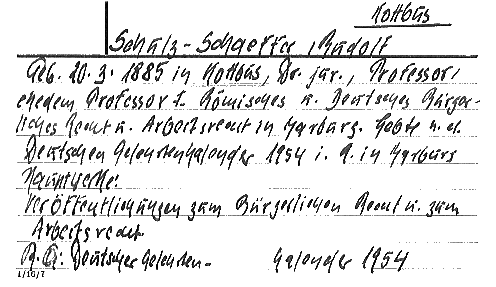 Kottbus
Schulz-Schaeffer, Rudolf
Geb. 20.3.1885 in Kottbus, Dr. jur., Professor,
ehedem Professor f. Römisches u. Deutsches Bürger-
liches Recht u. Arbeitsrecht in Marburg. Lebte n. d.
Deutschen Gelehrtenkalender 1954 i. R. in Marburg
Hauptwerke:
Veröffentlichungen zum Bürgerlichen Recht u. zum
Arbeitsrecht
B.Q: Deutscher Gelehrten- Kalender 1954
1/16/7